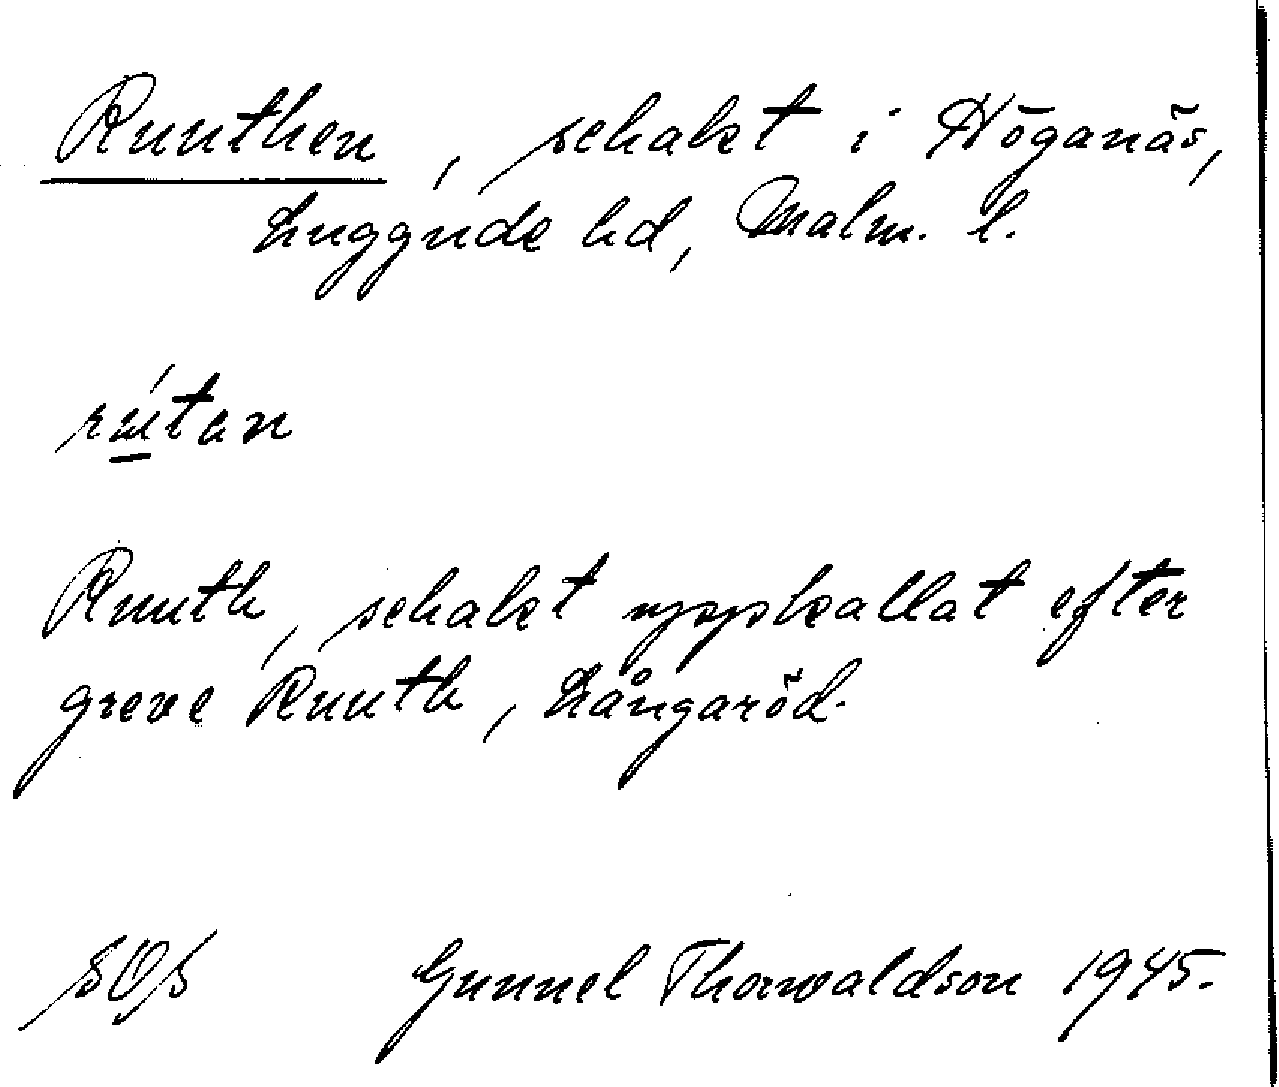 Ruuthen, schakt i Höganäs,
Luggude hd, Malm. l.
rútan
Ruuth, schakt uppkallat efter
greve Ruuth, Långaröd.
SOS Gunnel Thorwaldson 1945.